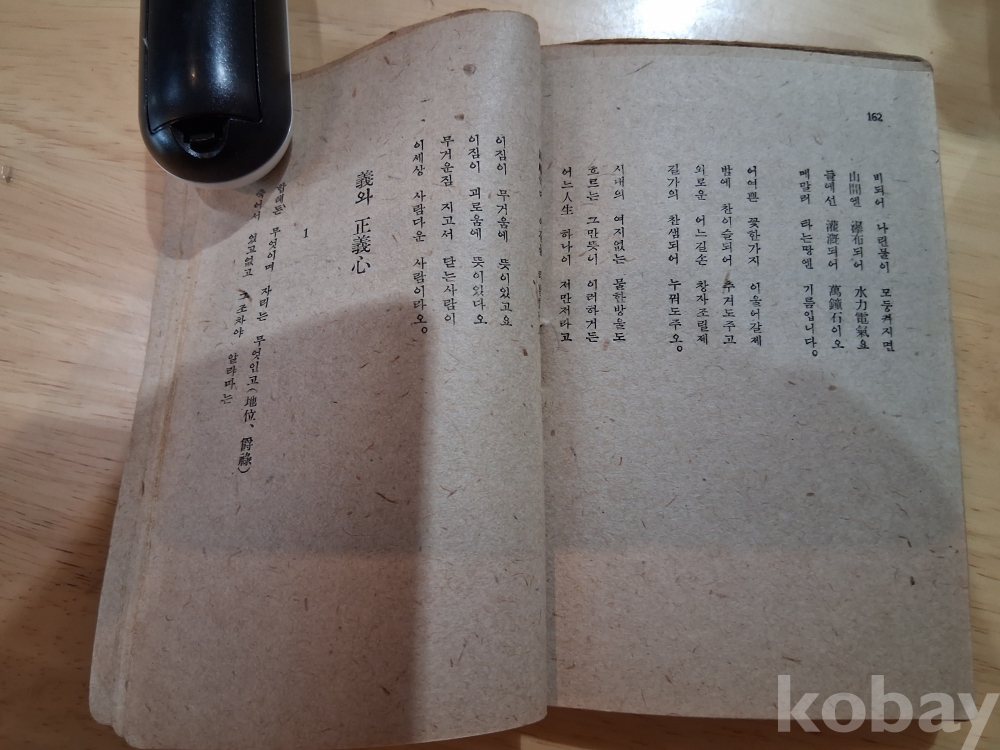 162
비되어 나린물이 모둥켜지면
山間엔 瀑布되어 水力電氣요
들에선 灌漑되어 萬鍾石이오
메말러 타는땅엔 기름입니다。
어여쁜 꽃한가지 이울어갈제
밤에 찬이슬되어 추겨도주고
외로운 어느길손 창자조릴제
길가의 찬샘되어 누꿔도주오。
시내의 여지없는 물한방울도
흐르는 그만뜻이 이러하거든
어느人生 하나이 저만저타고
이짐이 무거움에 뜻이있고요
이짐이 괴로움에 뜻이있다오
무거운짐 지고서 닫는사람이
이세상 사람다운 사람이라오。
義와 正義心
1
무엇이며 자리는 무엇인고(地位、爵祿)
죽어서 썼고없고 그조차야 알랴마는
kobay